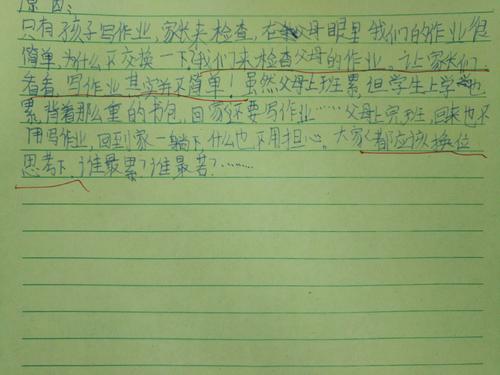 原因:
只有孩子写作业,家长来检查,在父母眼里我们的作业很
简单,为什么不交换一下,我们来检查父母的作业。让家长们
看看,写作业其实并不简单!虽然父母上班累,但学生上学也
累,背着那么重的书包,回家还要写作业……父母上完班,回来也不
用写作业,回到家一躺下,什么也不用担心。大家都应该换位
思考下,谁最累?谁最苦?……